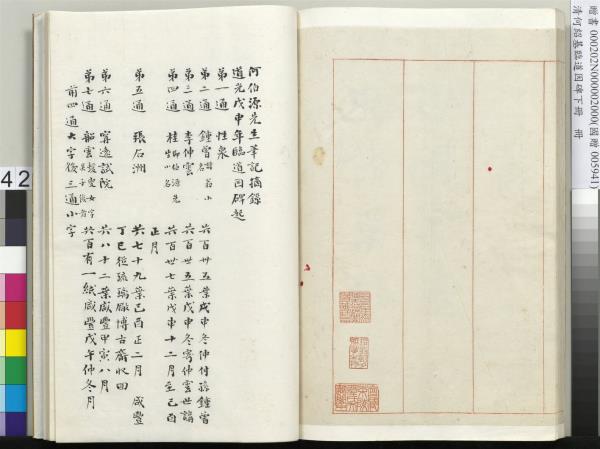 贈書 0002202N000002000(國贈 005941)
清何紹基臨道因碑下冊 冊
42
何伯源先生筆記摘錄
道光戊申年臨道因碑起
第一通 性泉
第二通 鍾曾 諱翁小名 共百廿五葉戊申冬仲付孫鍾曾
第三通 李仲雲 共百廿五葉戊申冬寄仲雲世講
第四通 桂 即伯源先生小名 共百廿七葉戊申十二月至己酉
正月
第五通 張石洲 共七十九葉己酉正二月 咸豐
丁巳從琉璃廠博古齋收回
第六通 寗遠試院 共八十二葉咸豐甲寅八月
第七通 韻雲 共百有一紙咸豐戊午仲冬月
前四通大字後三通小字